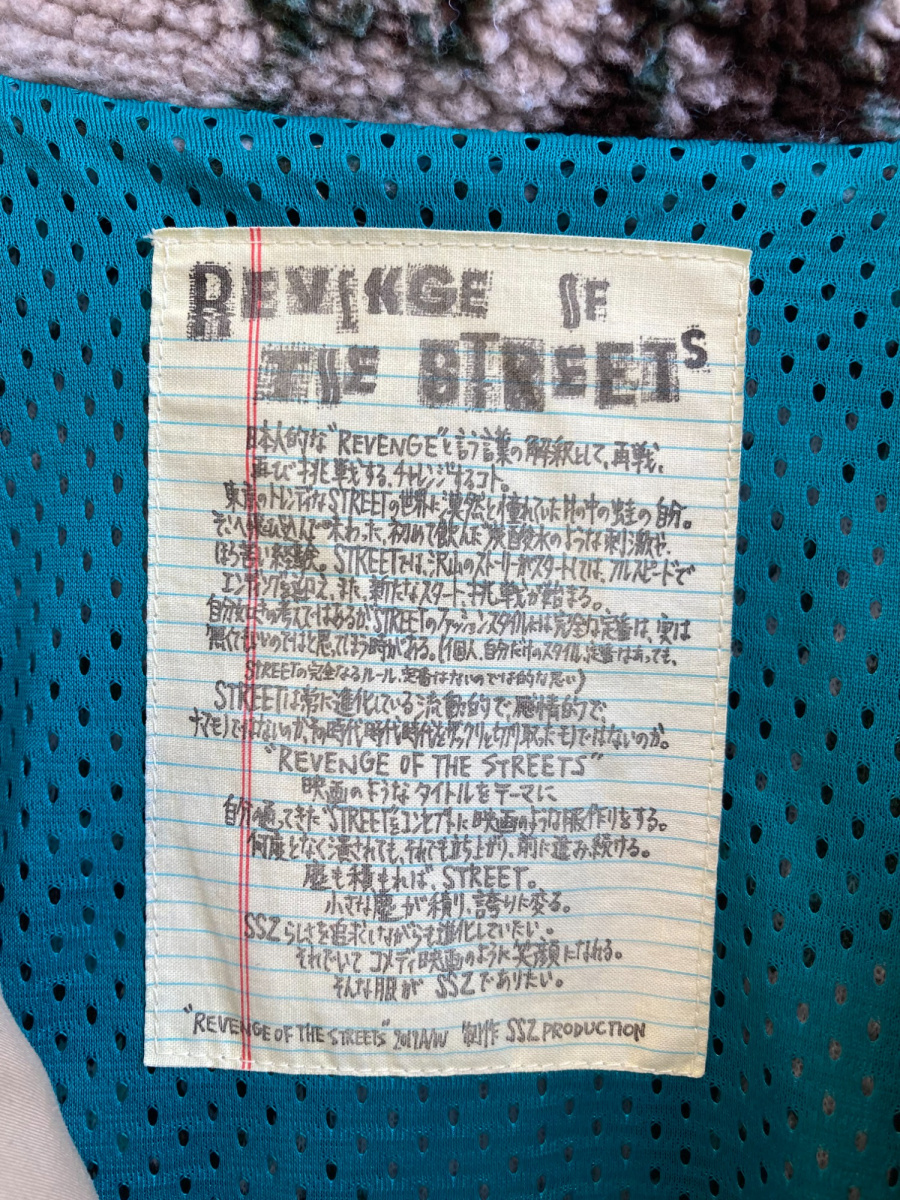 REVENGE OF
THE STREETS
日本人的な"REVENGE"と言う言葉の解釈として、再戦、
再び挑戦する、チャレンジするコト。
東京のトレンディなSTREETの世界に漠然と憧れていた井の中の蛙の自分。
そこへ飛び込んで味わった、初めて飲んだ炭酸水のような刺激や、
ほろ苦い経験。STREETでは、沢山のストーリーがスタートしては、フルスピードで
エンディングを迎え、また、新たなスタート、挑戦が始まる。
自分なりの考えではあるがSTREETのファッションスタイルとは完全な定番は、実は
無くてもいいのではと思ってしまう時がある。(個人、自分だけのスタイル、定番はあっても、
STREETの完全なるルール、定番はないのでは的な思い)
STREETは常に進化している流動的で、感情的で、
ナマモノではないのか、その時代時代時代をザックリと切り取ったモノではないのか。
"REVENGE OF THE STREETS"
映画のようなタイトルをテーマに
自分の通ってきた"STREET"をコンセプトに映画のような服作りをする。
何度となく潰されても、それでも立ち上がり、前に進み続ける。
塵も積もれば、STREET。
小さな塵が積り、誇りに変る。
SSZらしさを追求しながらも進化していたい。
それでいてコメディ映画のように笑顔になれる。
そんな服がSSZでありたい。
"REVENGE OF THE STREETS" 2017A/W 制作 SSZ PRODUCTION